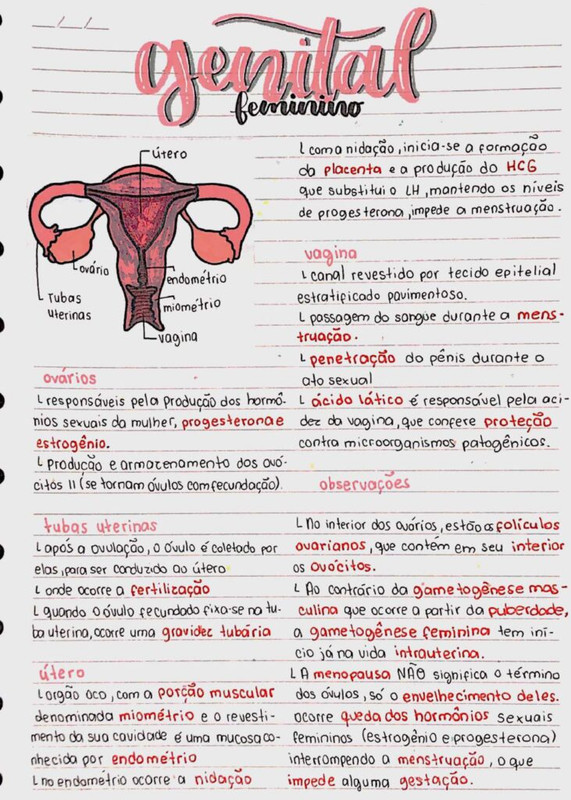 genital
feminino
útero
ovário
Tubas
uterinas
endométrio
miométrio
vagina
ovários
responsáveis pela produção dos hormô-
nios sexuais da mulher, progesterona e
estrogênio.
Produção e armazenamento dos ovó-
citos II (se tornam óvulos com fecundação).
tubas uterinas
após a ovulação, o óvulo é coletado por
elas, para ser conduzido ao útero
onde ocorre a fertilização
quando o óvulo fecundado fixa-se na tu-
ba uterina, ocorre uma gravidez tubária
útero
orgão oco, com a porção muscular
denominada miométrio e o revesti-
mento da sua cavidade é uma mucosa co-
nhecida por endométrio
no endométrio ocorre a nidação
com a nidação, inicia-se a formação
da placenta e a produção do HCG
que substitui o LH, mantendo os níveis
de progesterona, impede a menstruação.
vagina
canal revestido por tecido epitelial
estratificado pavimentoso.
passagem do sangue durante a mens-
truação.
penetração do pênis durante o
ato sexual
ácido lático é responsável pela aci-
dez da vagina, que confere proteção
contra microorganismos patogênicos.
observações
No interior dos ovários, estão os folículos
ovarianos, que contém em seu interior
os ovócitos.
Ao contrário da gametogênese mas-
culina que ocorre a partir da puberdade,
a gametogênese feminina tem iní-
cio já na vida intrauterina.
A menopausa NÃO significa o término
dos óvulos, só o envelhecimento deles.
ocorre queda dos hormônios sexuais
femininos (estrogênio e progesterona)
interrompendo a menstruação, o que
impede alguma gestação.